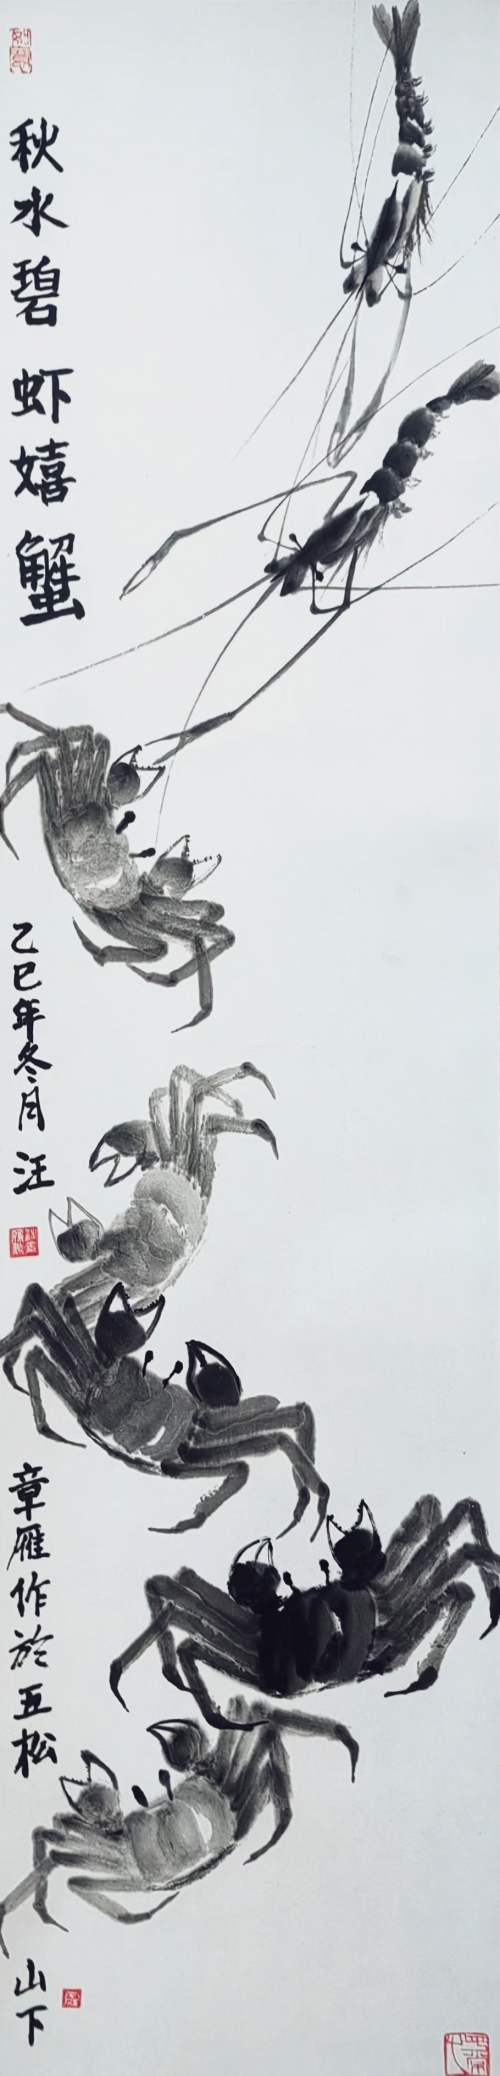 秋水碧虾嬉蟹
乙巳年冬月汪
章雁作於五松
山下